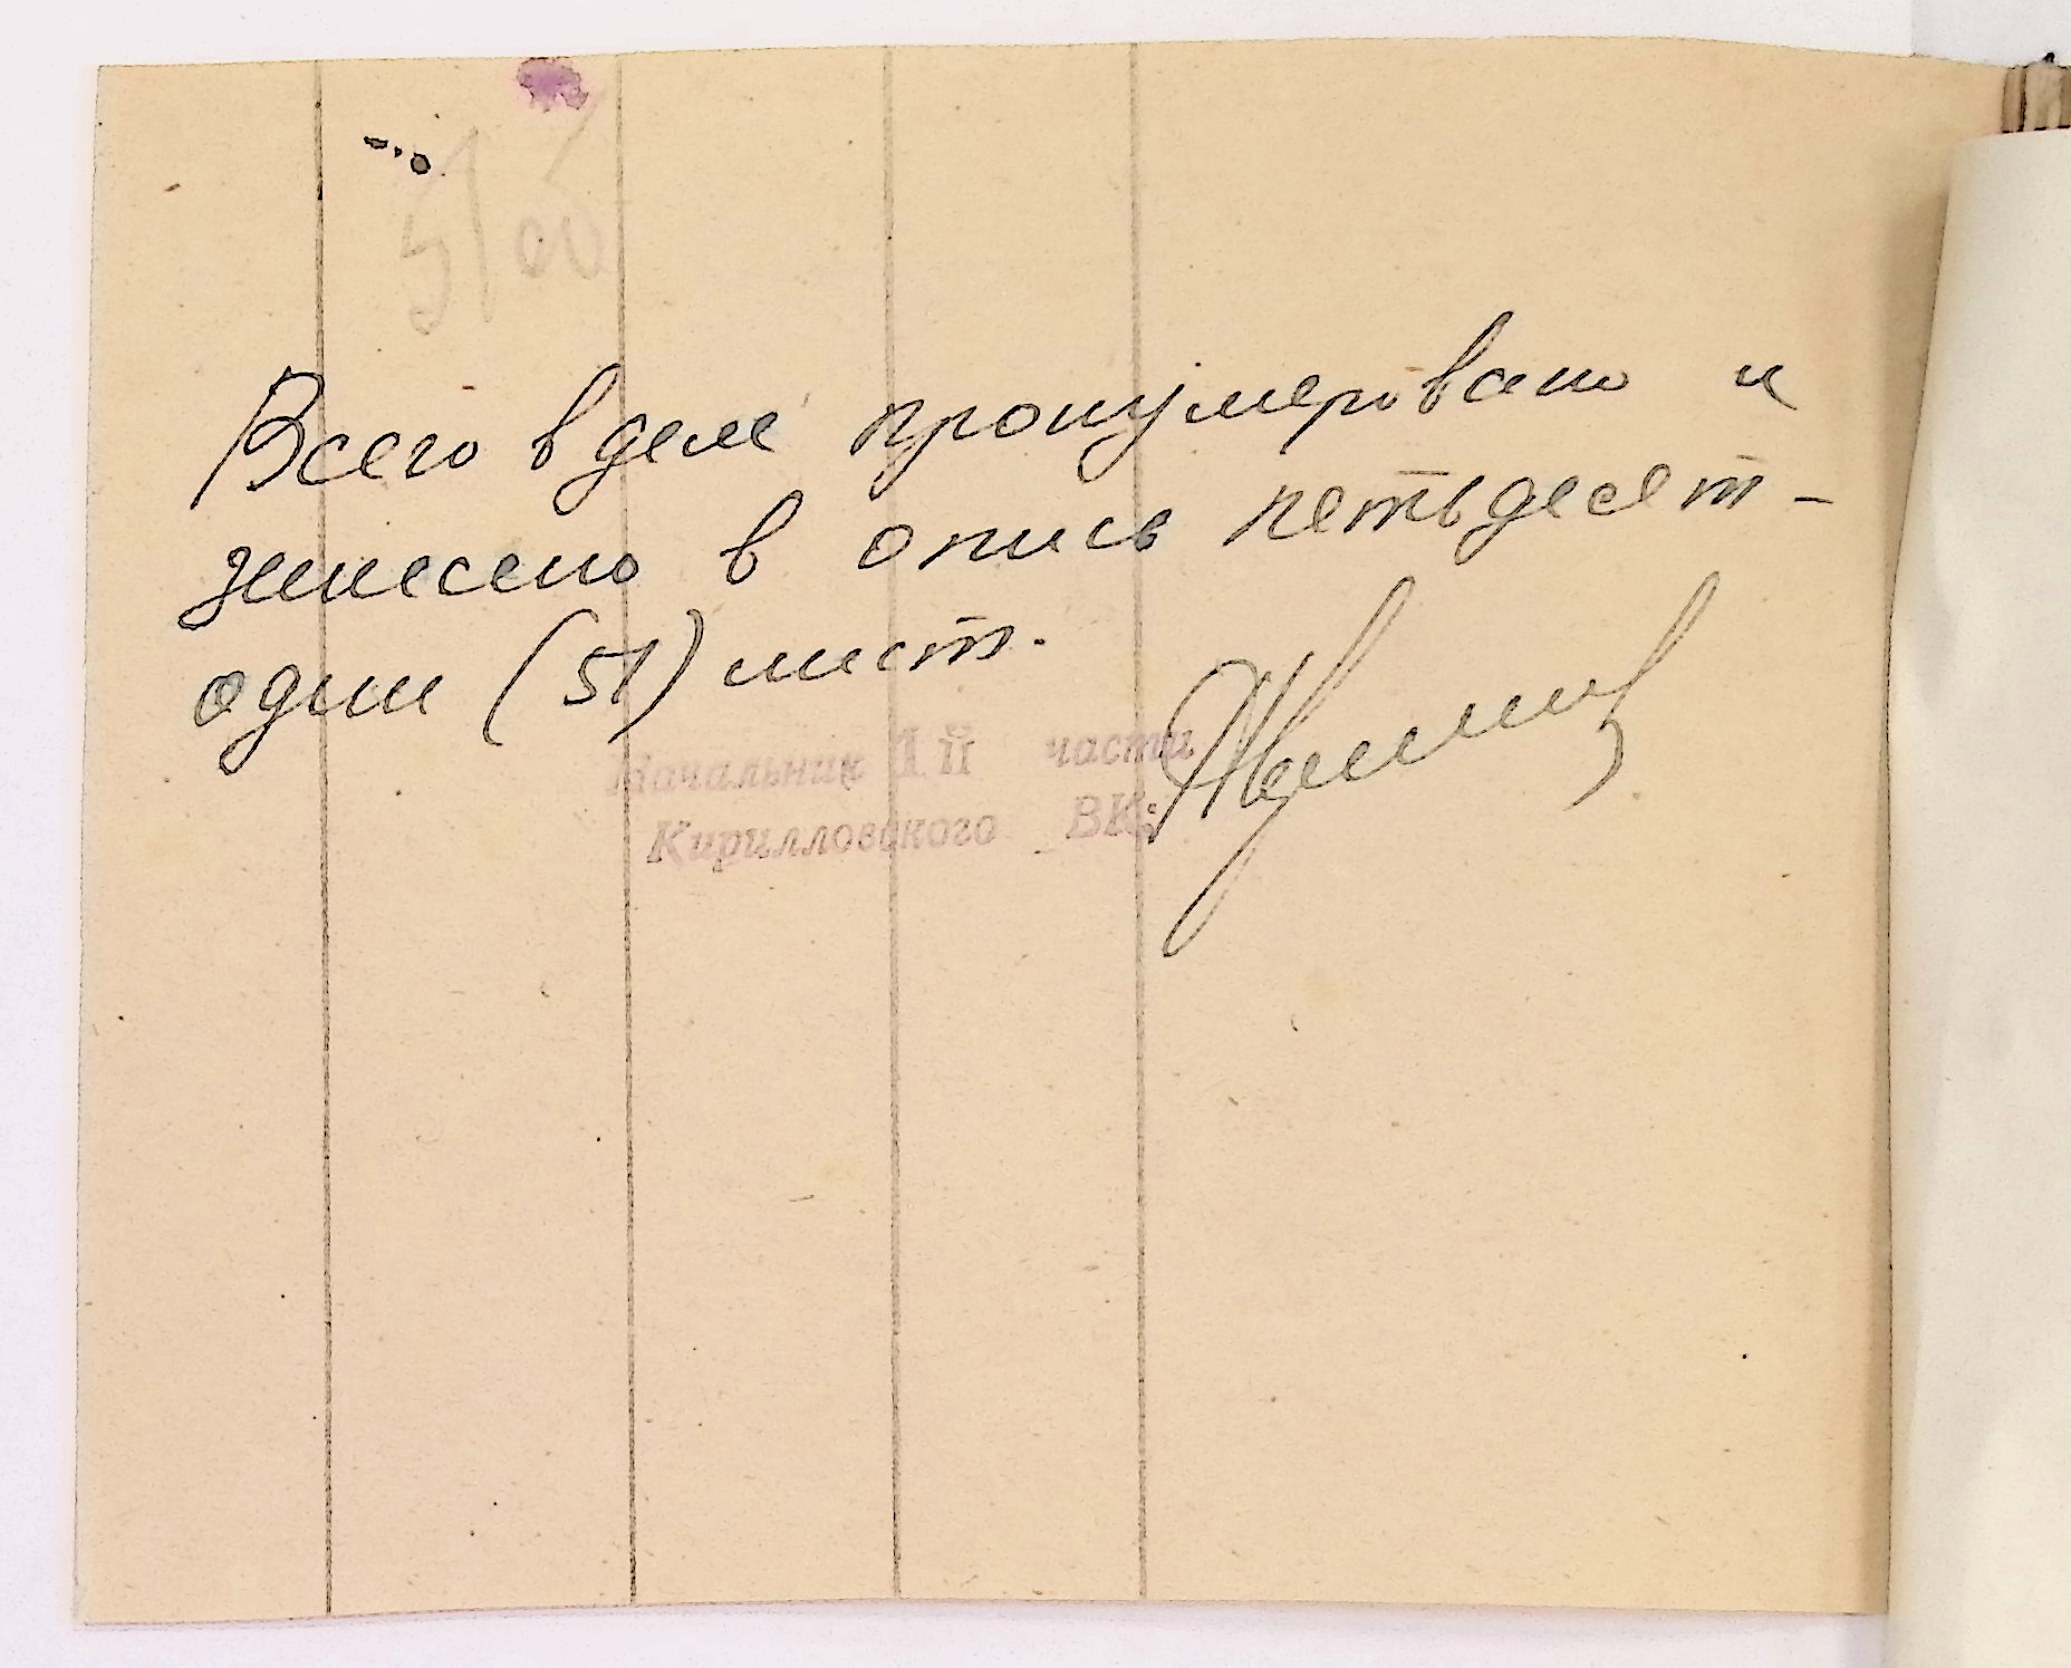 51 об
Всего в деле пронумеровано и
занесено в опись петьдесет-
один (51) лист.
Начальник 1й части
Кирилловского ВК